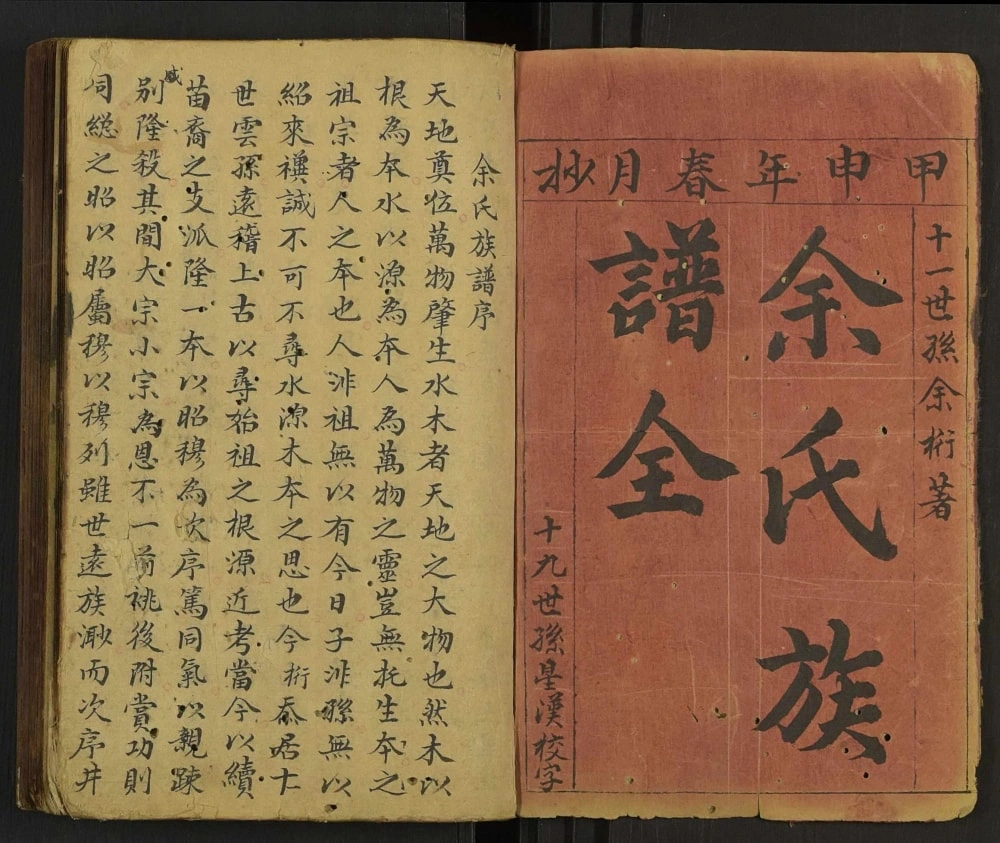 甲申年春月抄
十一世孫余桁著
余氏族
譜全
十九世孫星漢校字
余氏族譜序
天地奠位萬物肇生水木者天地之大物也然木以
根為本水以源為本人為萬物之靈豈無托生本之
祖宗者人之本也人非祖無以有今日子非孫無以
紹來禩誠不可不尋水源木本之思也今桁忝居七
世雲孫遠稽上古以尋始祖之根源近考當今以續
苗裔之支派隆一本以昭穆為次序篤同氣以親疎
別隆殺其間大宗小宗為恩不一前祧後附賞功則
同總之昭以昭屬穆以穆列雖世遠族渺而次序井